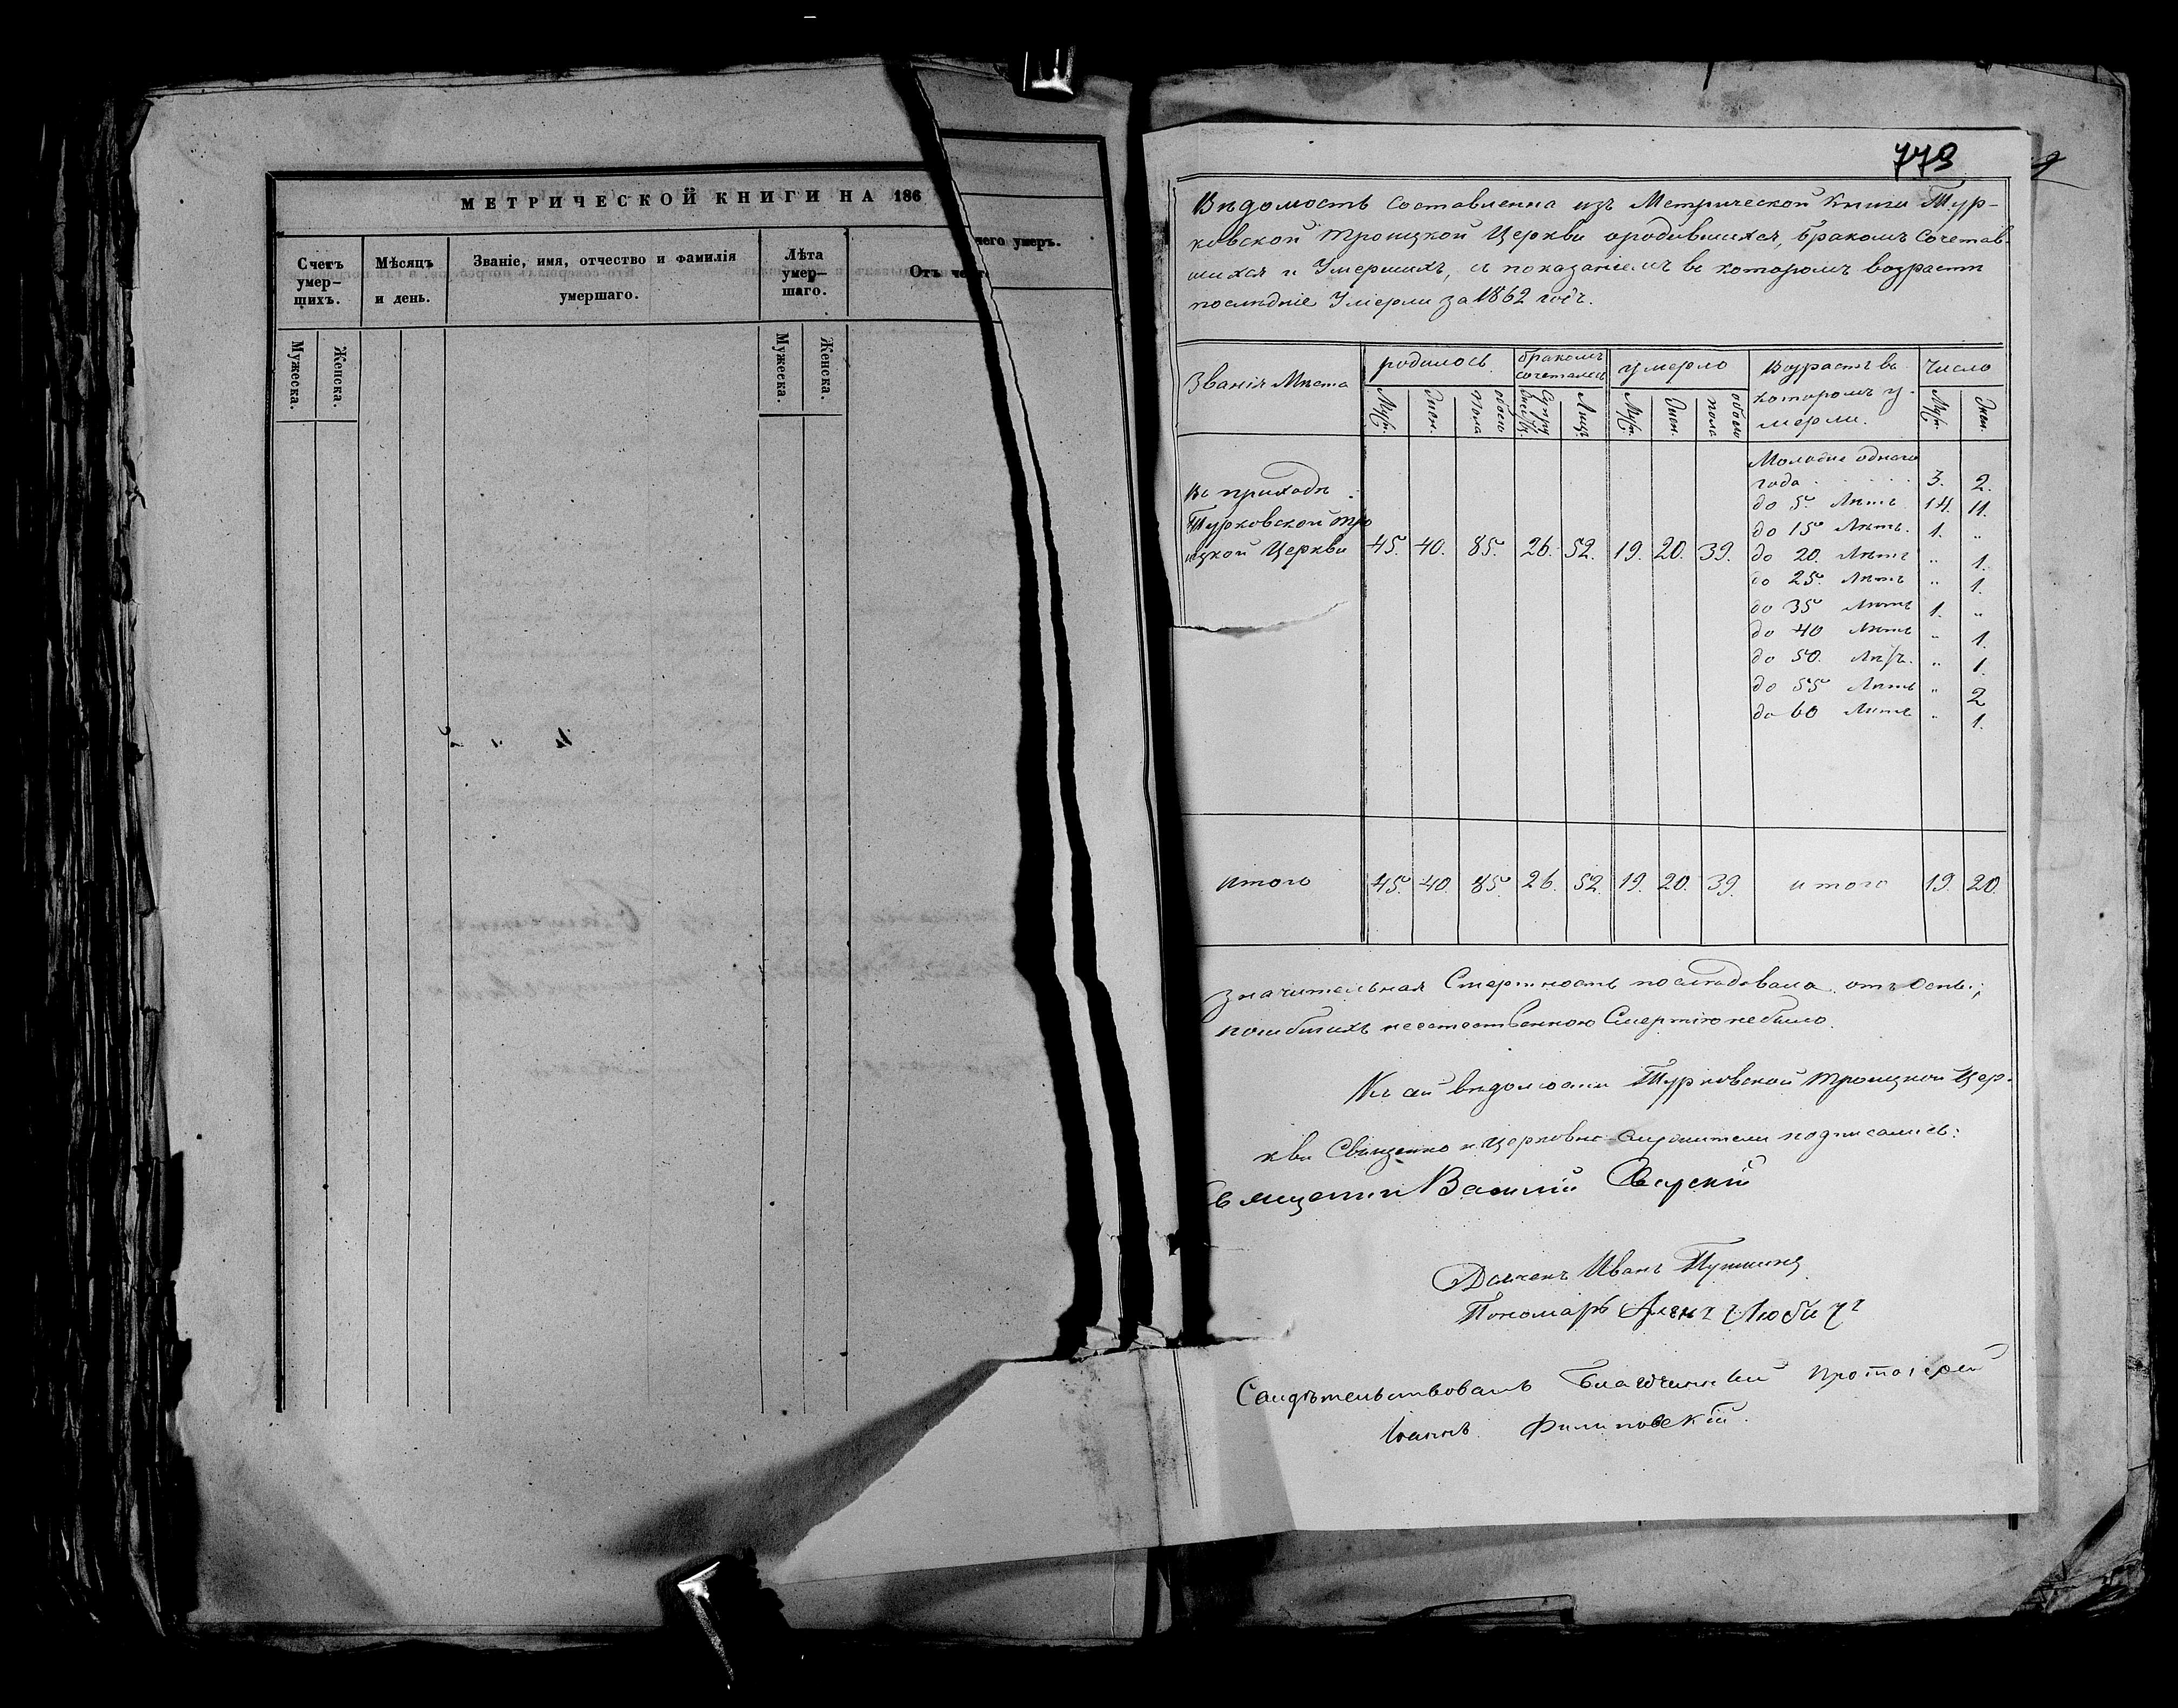 МЕТРИЧЕСКОЙ КНИГИ НА 186
Счетъ умер-
шихъ.
Мѣсяцъ
и день.
Званіе, имя, отчество и фамилія
умершаго.
Лѣта
умер-
шаго.
Отъ чего
чего умеръ.
Мужеска.
Женска.
Мужеска.
Женска.
779
Вѣдомость составлена изъ Метрической Книги Тур-
ковской Троицкой Церкви ородившихся, бракомъ Сочетав-
шихся и Умершихъ, съ показаніемъ въ которомъ возрасти
послѣдніе Умерли за 1862 годъ.
Званія Мѣста
родилось
бракомъ
сочеталось
умерло
Возрастъ въ
которомъ у-
мерли.
Число
Муж.
Жен.
обоего
пола
Лицъ
Муж.
Жен.
обоего
пола
Муж.
Жен.
Въ приходѣ
Турковской Тро
ицкой Церкви 45. 40. 85. 26. 52. 19. 20. 39.
Моложе одного
года 3. 2.
до 5 Лѣтъ 14. 11.
до 15 Лѣтъ. 1. "
до 20. Лѣтъ " 1.
до 25. Лѣтъ " 1.
до 35 Лѣтъ 1. "
до 40 Лѣтъ " 1.
до 50. Лѣтъ. " 1.
до 55 Лѣтъ " 2
до 60 Лѣтъ " 1.
итого 45. 40. 85 26. 52. 19. 20. 39. итого 19. 20.
Значительная Смертность послѣдовала отъ Оспы;
погибшихъ неестественною Смертію небыло.
Къ сей вѣдомости Турковской Троицкой Цер-
кви Священно и Церковно-служители подписались:
Священник Василій
Дьячекъ Иванъ
Пономарь
Свидѣтельствовалъ Благочинный Протоіерей
Іоаннъ Филиповскій.